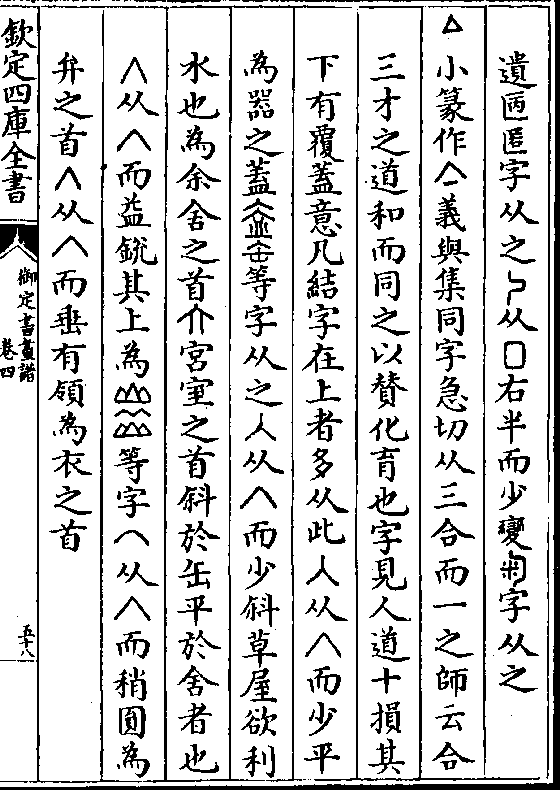 遺匜匿字从之㇉从囗右半而少變匊字从之
亼小篆作亼一義與集同字急切从三合而一之師云合
三才之道和而同之以贊化育也字見人道十損其
下有覆蓋意凡結字在上者多从此人从𠆢而少平
為器之蓋亼㿽缶等字从之人从𠆢而少斜草屋欲利
水也為余舍之首宮室之首斜於缶平於舍者也
𠆢从𠆢而益銳其上為等字𠆢从𠆢而稍圓為
弁之首𠆢从𠆢而垂有領為衣之首
欽定四庫全書
御定書畫譜
卷四
五十八